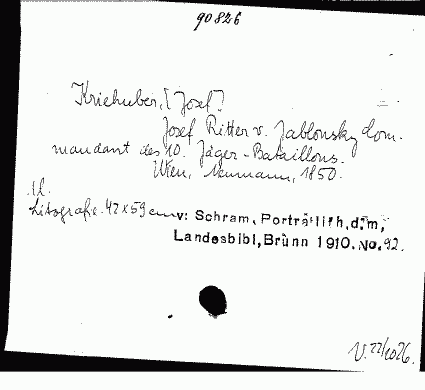 90826
Kriehuber, [Josef]
Josef Ritter v. Jablonsky Com-
mandant des 10. Jäger-Bataillons.
Wien, Neumann, 1850.
Litografie 42x59 cm v: Schram, Porträtlith,d.m,
Landesbibl,Brünn 1910. No. 92.
V. 22/1026.